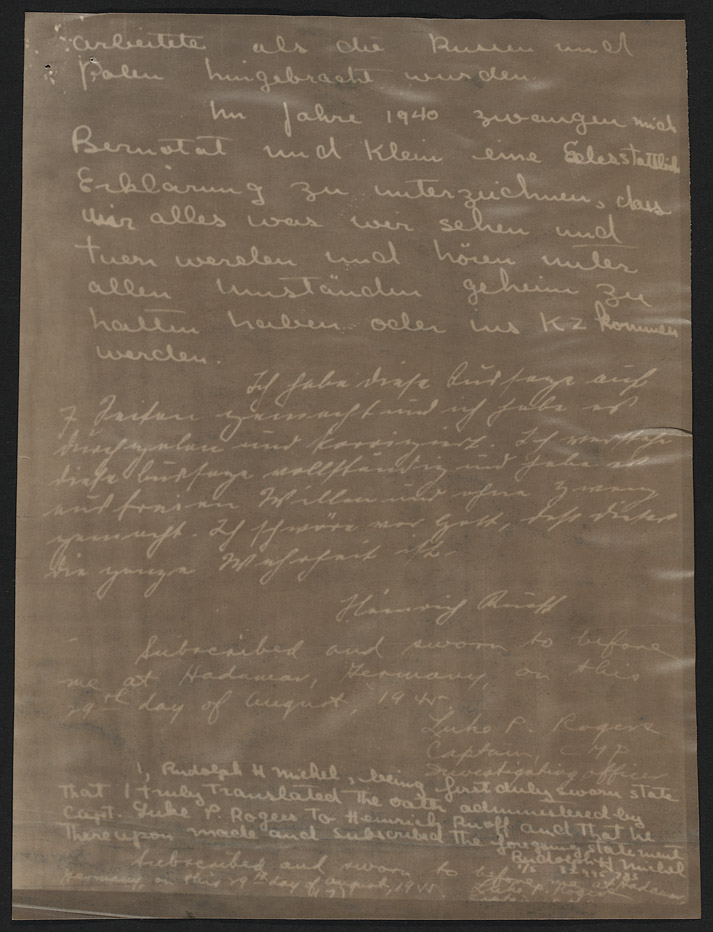 arbeitete als die Russen und
Polen hingebracht wurden.
Im Jahre 1940 zwangen mich
Bernotat und Klein eine Eidesstattlich
Erklärung zu unterzeichnen, dass
wir alles was wir sehen und
tuen werden und hören unter
allen Umständen geheim zu
halten haben oder ins KZ kommen
werden.
Ich habe diese Aussage auf
7 Seiten gemacht und ich habe es
durchgelesen und korrigiert. Ich verstehe
diese Aussage vollständig und habe es
aus freien Willen und ohne Zwang
gemacht. Ich schwöre vor Gott, dass dieses
die ganze Wahrheit ist.
Heinrich Ruoff
Subscribed and sworn to before
me at Hadamar, Germany, on this
29th day of August, 1945.
Luke P. Rogers
Captain, CMP
Investigating officer
I, Rudolph H Michel, being first duly sworn state
That I truly translated the oath administered by
Capt. Luke P. Rogers To Heinrich Ruoff and that he
Thereupon made and subscribed the foregoing statement
Rudolph H Michel
Subscribed and sworn to before me at Hadamar,
Germany, on this 29th day of August, 1945.
Luke P. Rogers